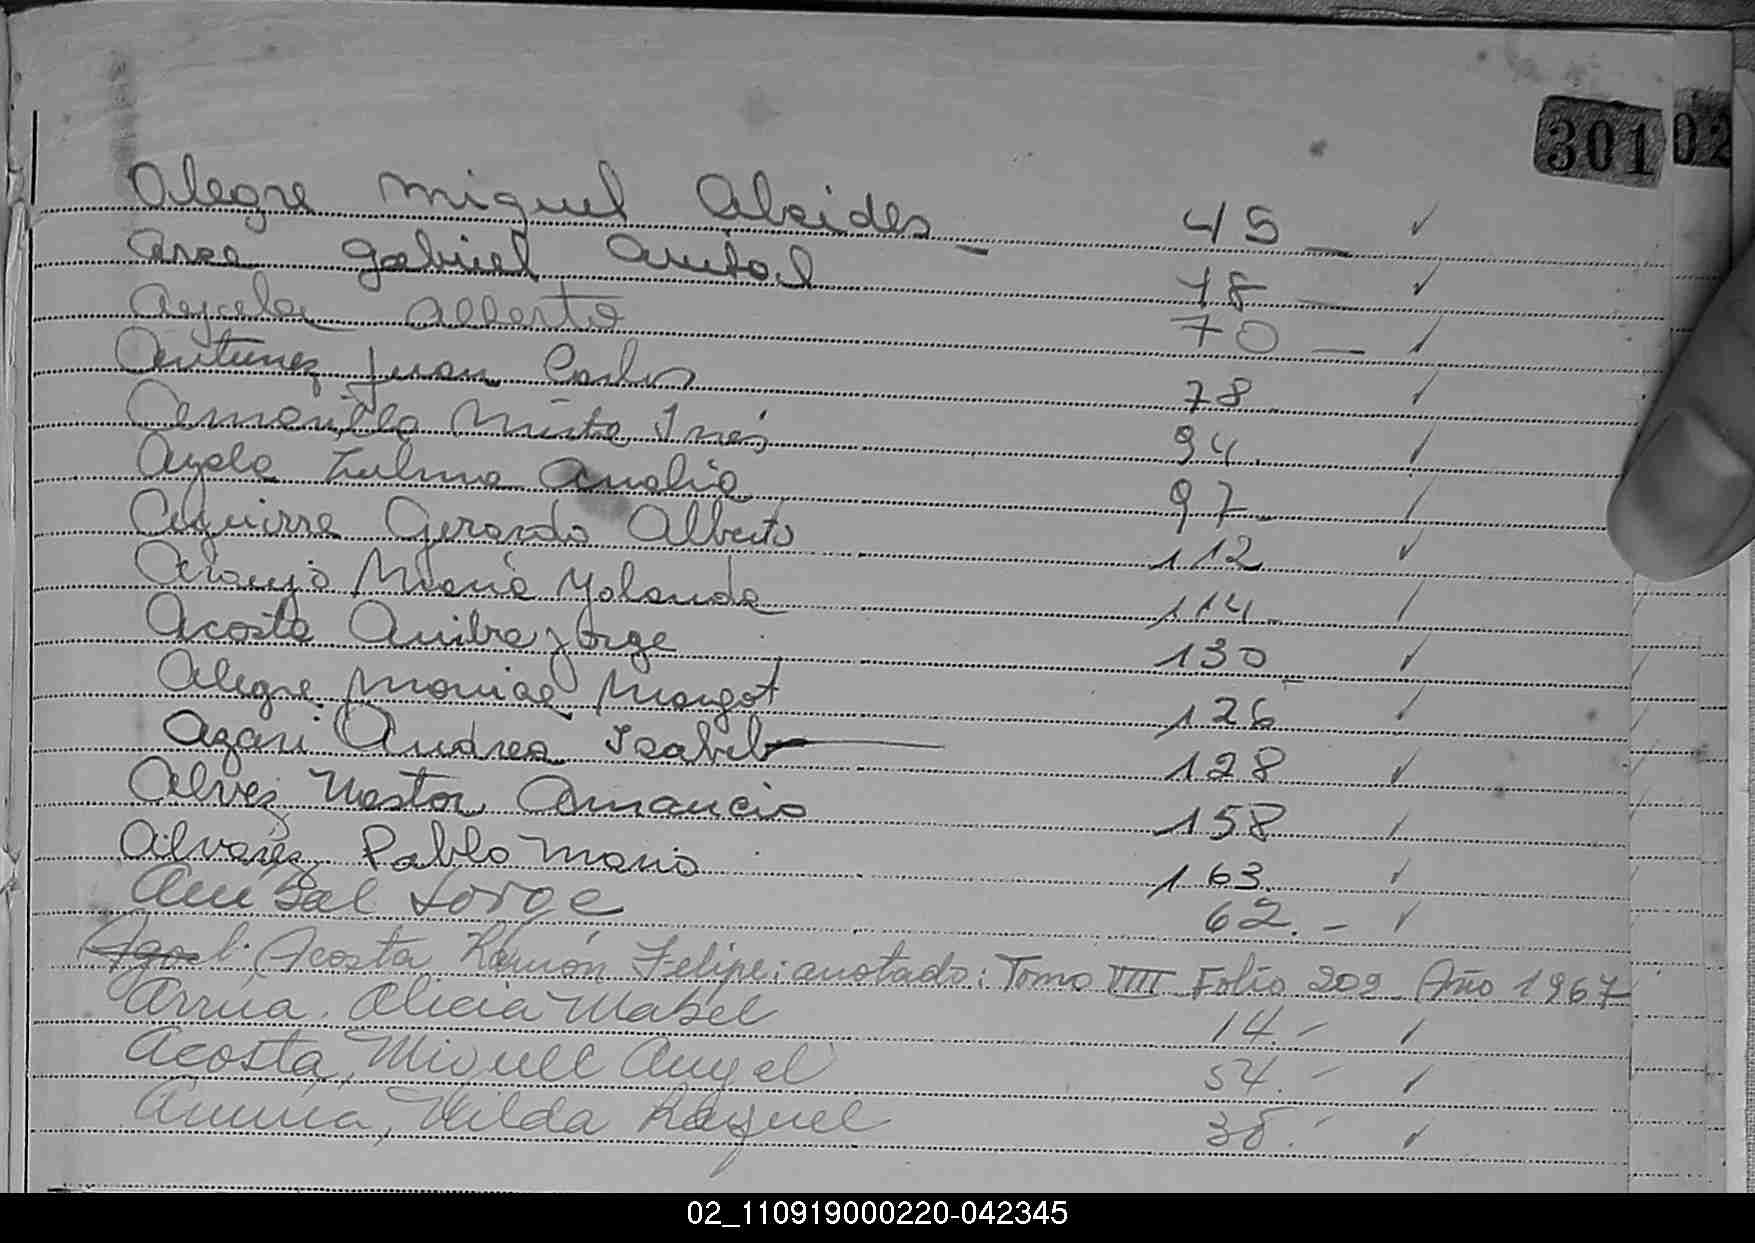 301
02
Alegre Miguel Alcides - 45 - ✓
Arce Gabriel Anibal 48 - ✓
Alberto 70 - ✓
Antunez Juan Carlos 78 ✓
Amarilla Mirta Inés 94. ✓
Ayala Zulma Analia 97 - ✓
Aguirre Gerardo Alberto 112 ✓
Araujo Maria Yolanda 114 ✓
Acosta Jorge 130 ✓
Alegre Margot 126 ✓
Azari Andrea Isabel 128 ✓
Alvez Nestor Amancio 158 ✓
Alvarez Pablo Mario 163. ✓
Anibal Jorge 62. - ✓
Acosta Ramón Felipe: anotado: Tomo VIII Folio 202 Año 1967
Arrua. Alicia Mabel 14. - ✓
Acosta, Miguel Angel 54. - ✓
Hilda Raquel ✓
02_110919000220-042345